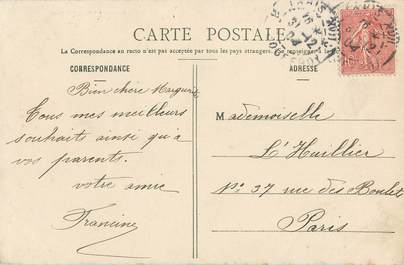 CARTE POSTALE
La Correspondance au recto n'est pas acceptée par tous les pays étrangers. (Se renseigner à la
CORRESPONDANCE
ADRESSE
Bien chère Marguerite
Tous mes meilleurs
souhaits ainsi qu'à
vos parents.
votre amie
Francine
Mademoiselle
L'Huillier
No 37 rue des Boulet
Paris